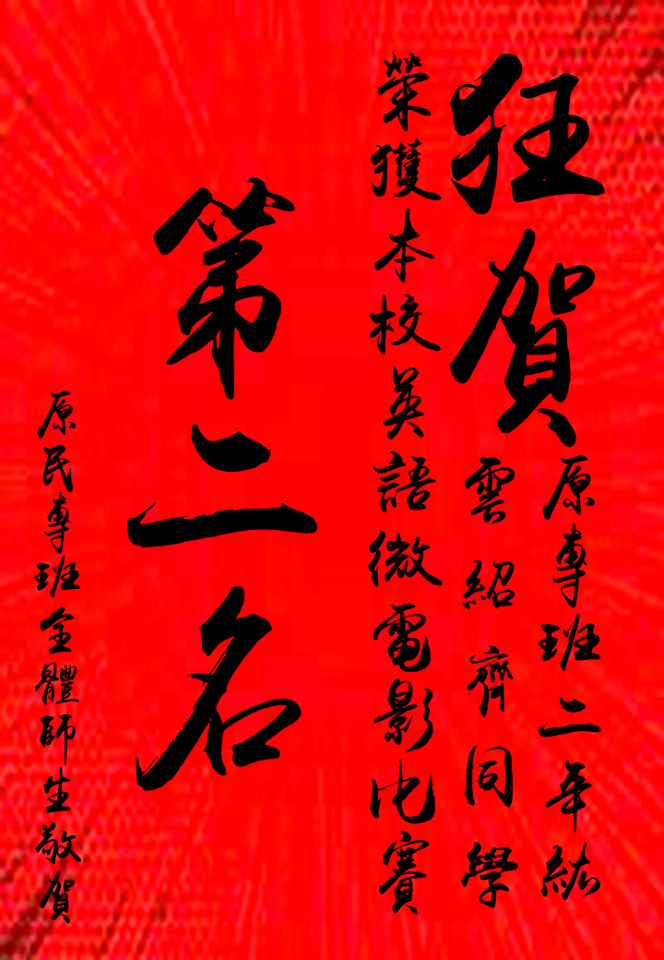 狂賀
原專班二年級
雲紹齊同學
榮獲本校英語微電影比賽
第二名
原民專班全體師生敬賀